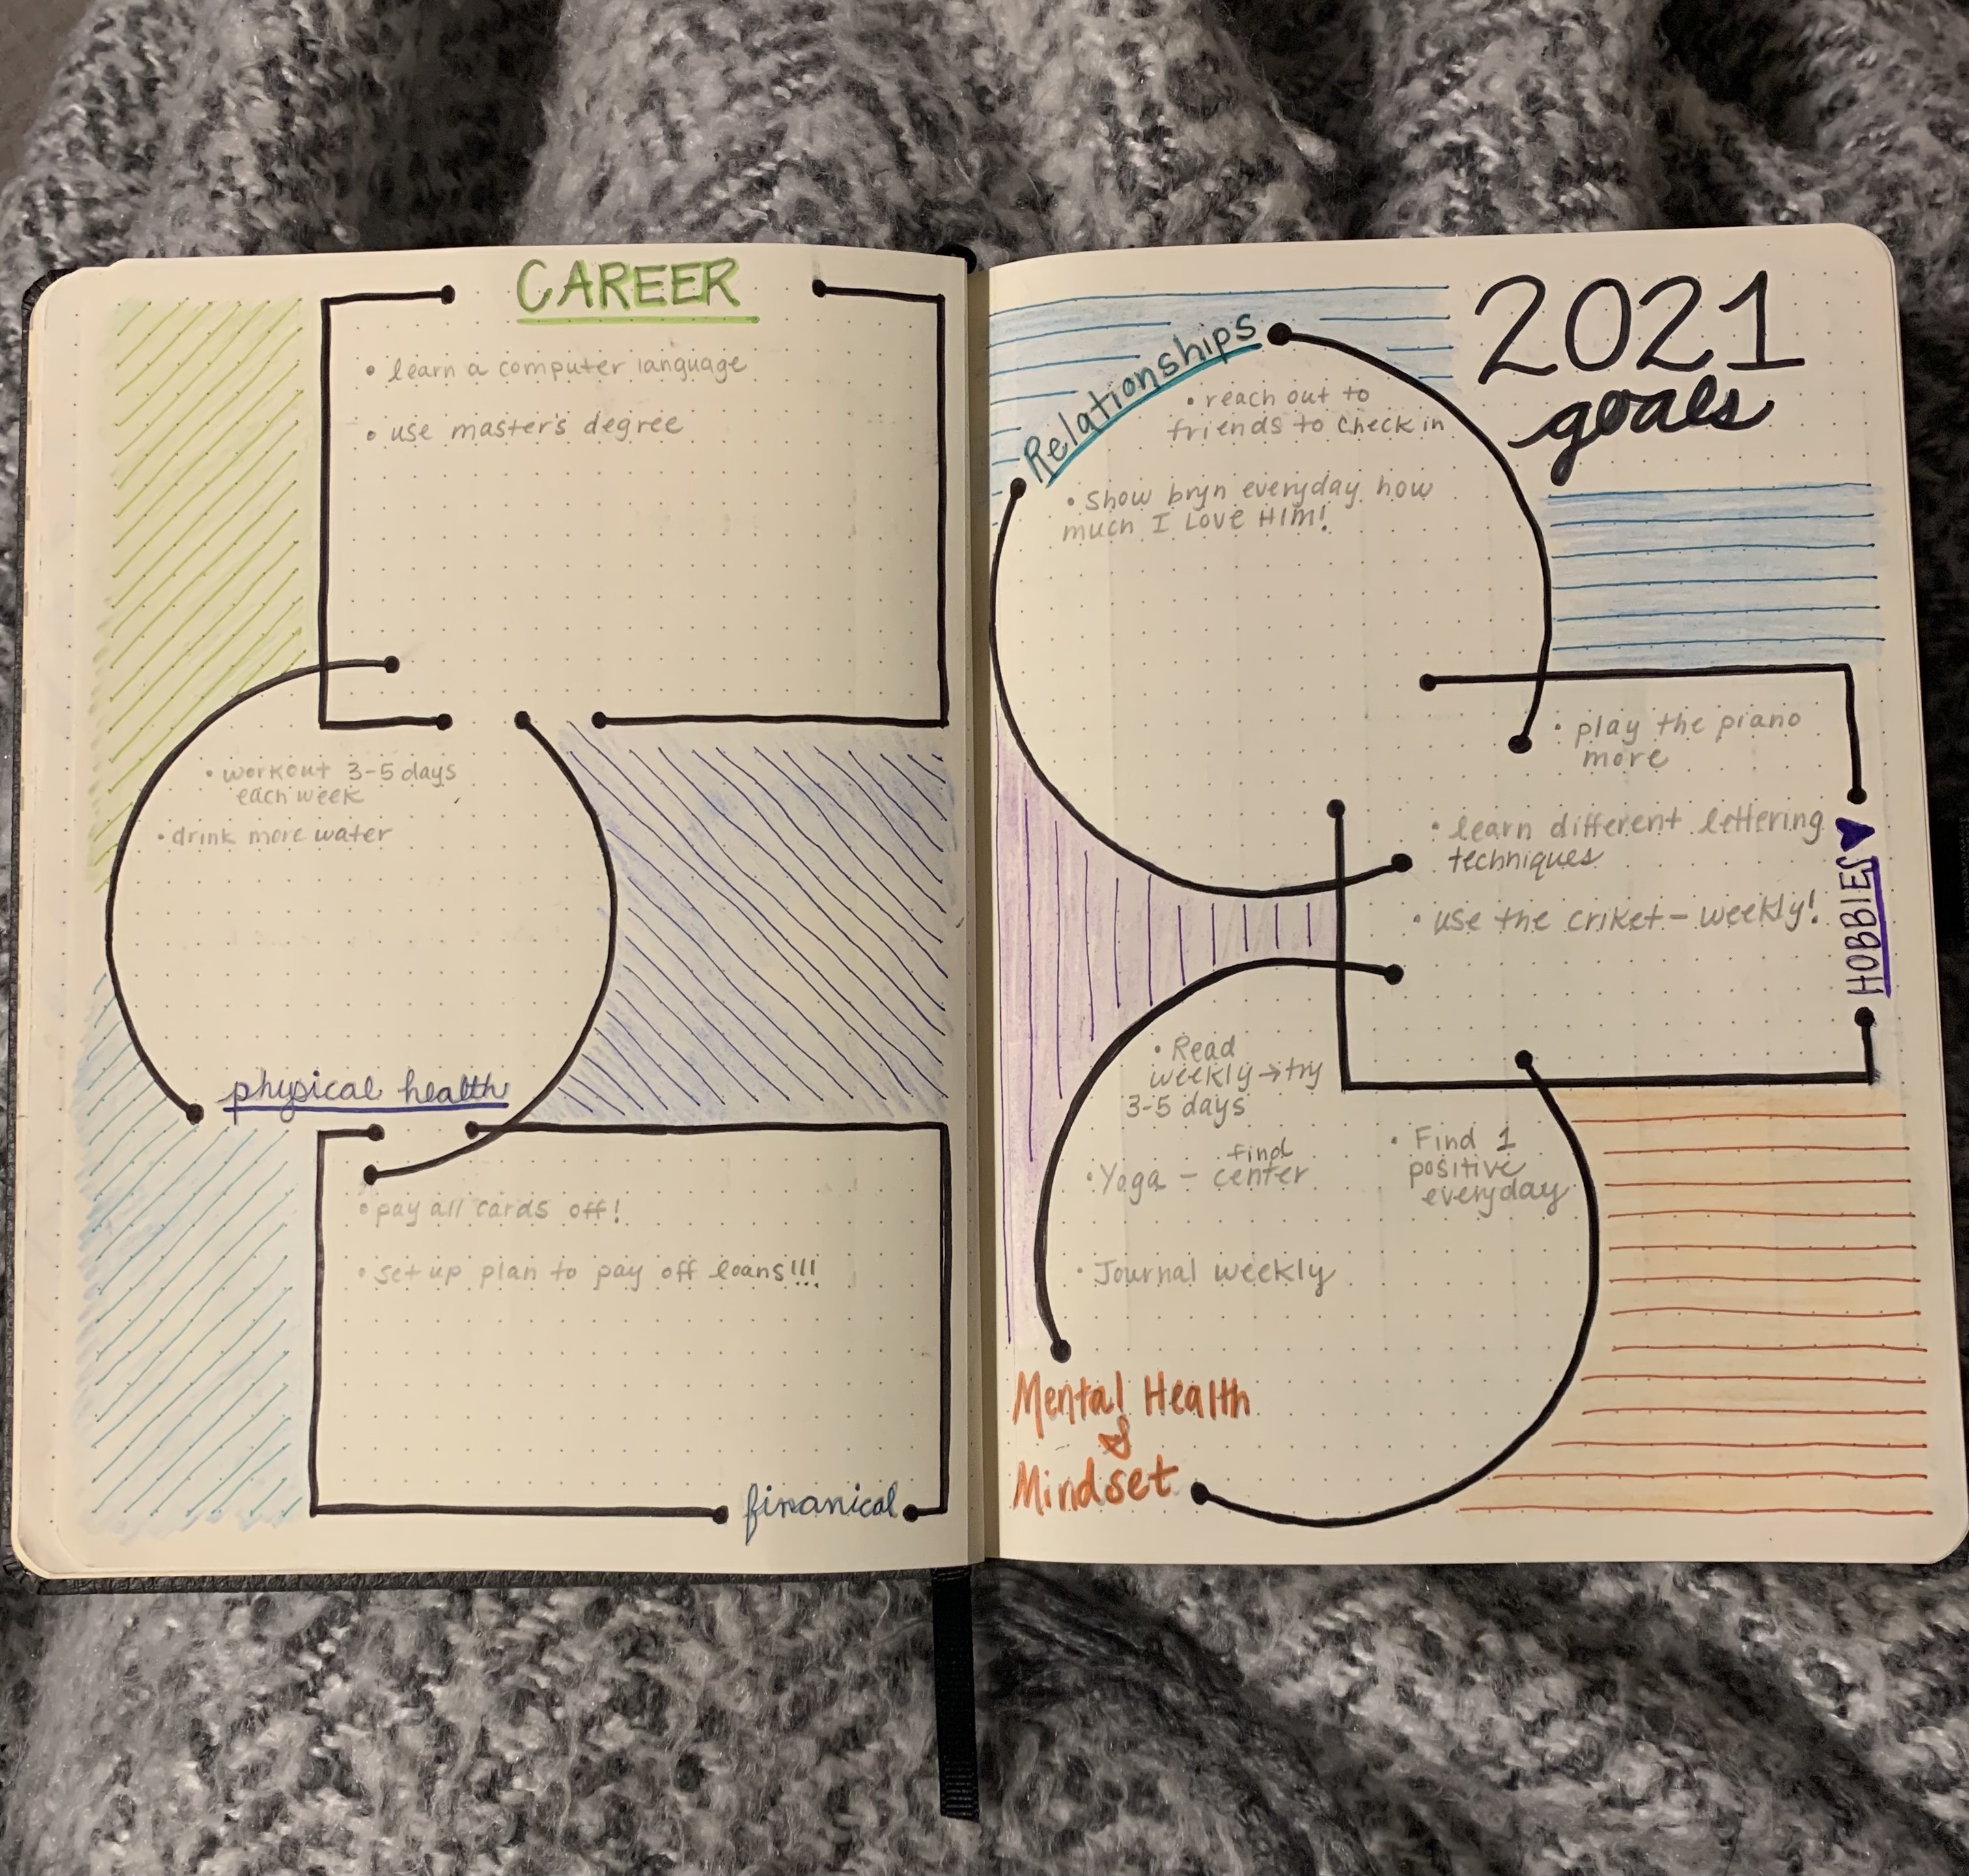 CAREER
• learn a computer language
• use master's degree
• workout 3-5 days
each week
• drink more water
physical health
• pay all cards off!
• set up plan to pay off loans!!!
finanical
2021
goals
Relationships
• reach out to
friends to check in
• Show bryn everyday how
much I LOVE HIM!
• play the piano
more
• learn different lettering
techniques
• use the criket - weekly!
HOBBIES
• Read
weekly → try
3-5 days
• Yoga - find
center
• Find 1
positive
everyday
• Journal weekly
Mental Health
&
Mindset